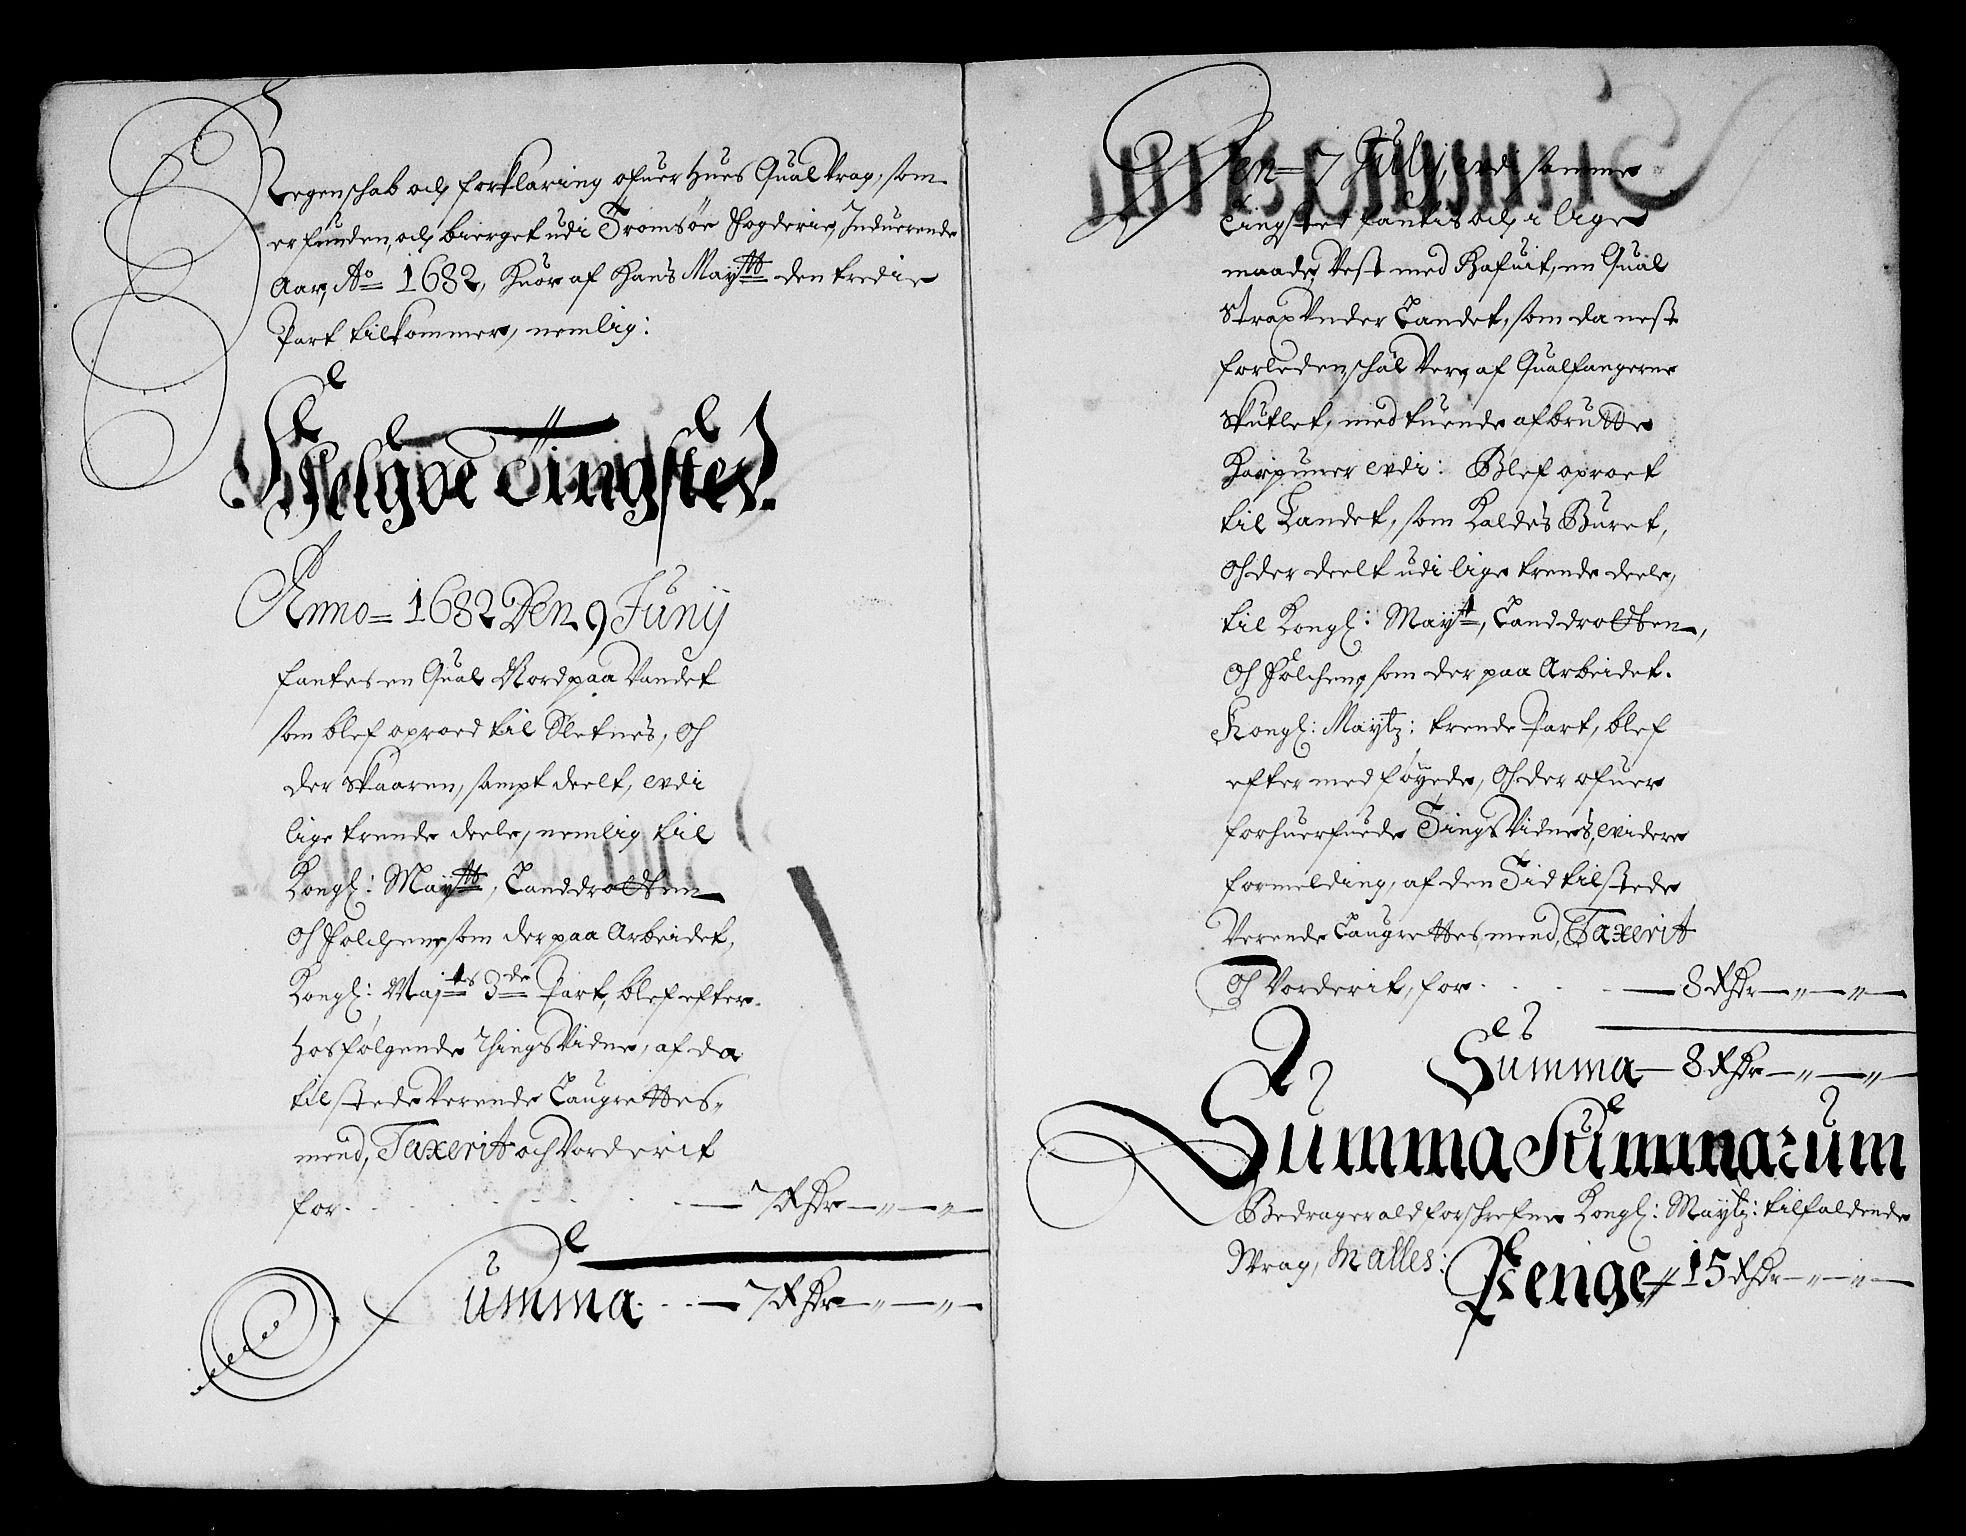 Regenschab och forklaring ofuer hues Qual Vrag, som
er funden, och bierget udi Tromsöe Fogderie, Induerende
Aar, Ao 1682, huor af hans Maytts den tredie
Part tilkommer, nemlig:
Helgöe Tingsted.
Anno = 1682 Den 9 Junij
fantes en Qual Nord paa Vandet
som blef oproed til Sletnes, Och
der skaaren, sampt deelt, evdi
lige trende deele, nemlig til
Kongl: Maytts, Landdrotten
Och Folchene, som der paa Arbeidet,
Kongl: Majts 3de Part, blef efter
hosfølgende Things Vidne, af da
tilstede Verende Laugrettes-
mend, Taxerit och Vorderit
for . . . . . — 7 Rdr — „ — „ —
Summa . . — 7 Rdr — „ — „ —
Den = 7 Julij, evdi samme
Tingsted fantis och i lige
maade, Vest med Hafuit, en Qual
strax Vnder Landet, som da nest
forleden, schal Vere af Qualfangerne
skutlet, med tuende afbrutte
Harpuner evdi: Blef oproet
til Landet, som Kaldes Buret,
Och der deelt udi lige trende deele,
til Kongl: Maytt, Landdrotten,
Och Folchene, som der paa Arbeidet.
Kongl: Maytz: trende Part, blef
efter med føyede, Och der ofuer
forhuerfuede Tings Vidnes, evidere
formelding, af den Tid tilstede
Verende Laugrettes, mend, Taxerit
Och Vorderit, for . . . — 8 Rdr — „ — „ —
Summa — 8 Rdr — „ — „ —
Summa Summarum
Bedrager ald forschrefne Kongl: Maytz: tilfaldende
Wrag, In alles: Penge 15 Rdr — „ — „ —